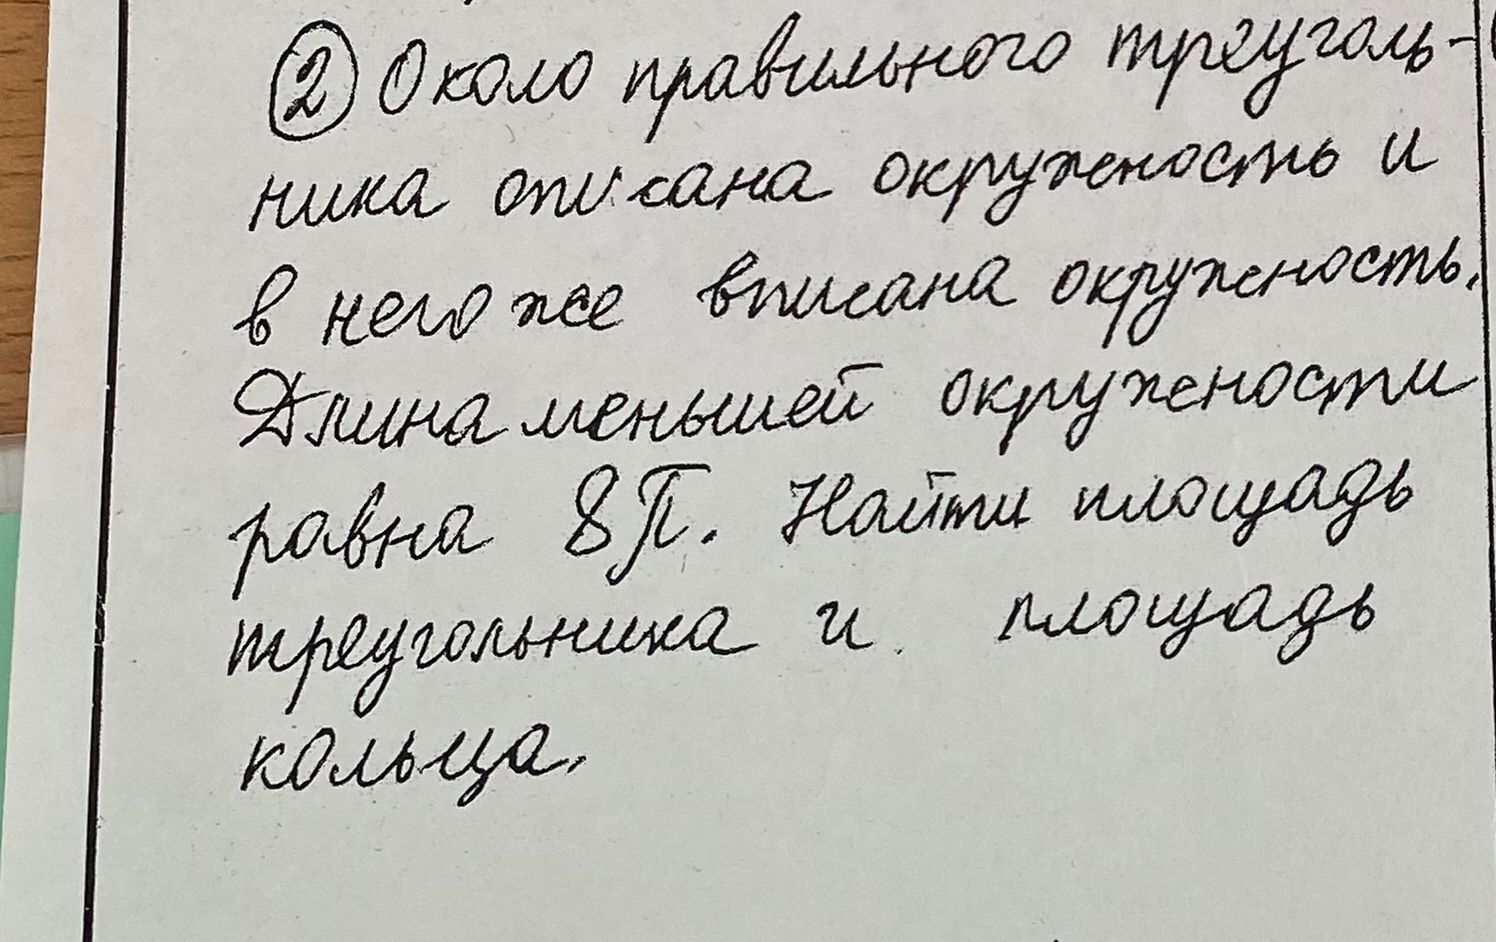 ② Около правильного треуголь-
ника описана окружность и
в него же вписана окружность.
Длина меньшей окружности
равна 8π. Найти площадь
треугольника и площадь
кольца.